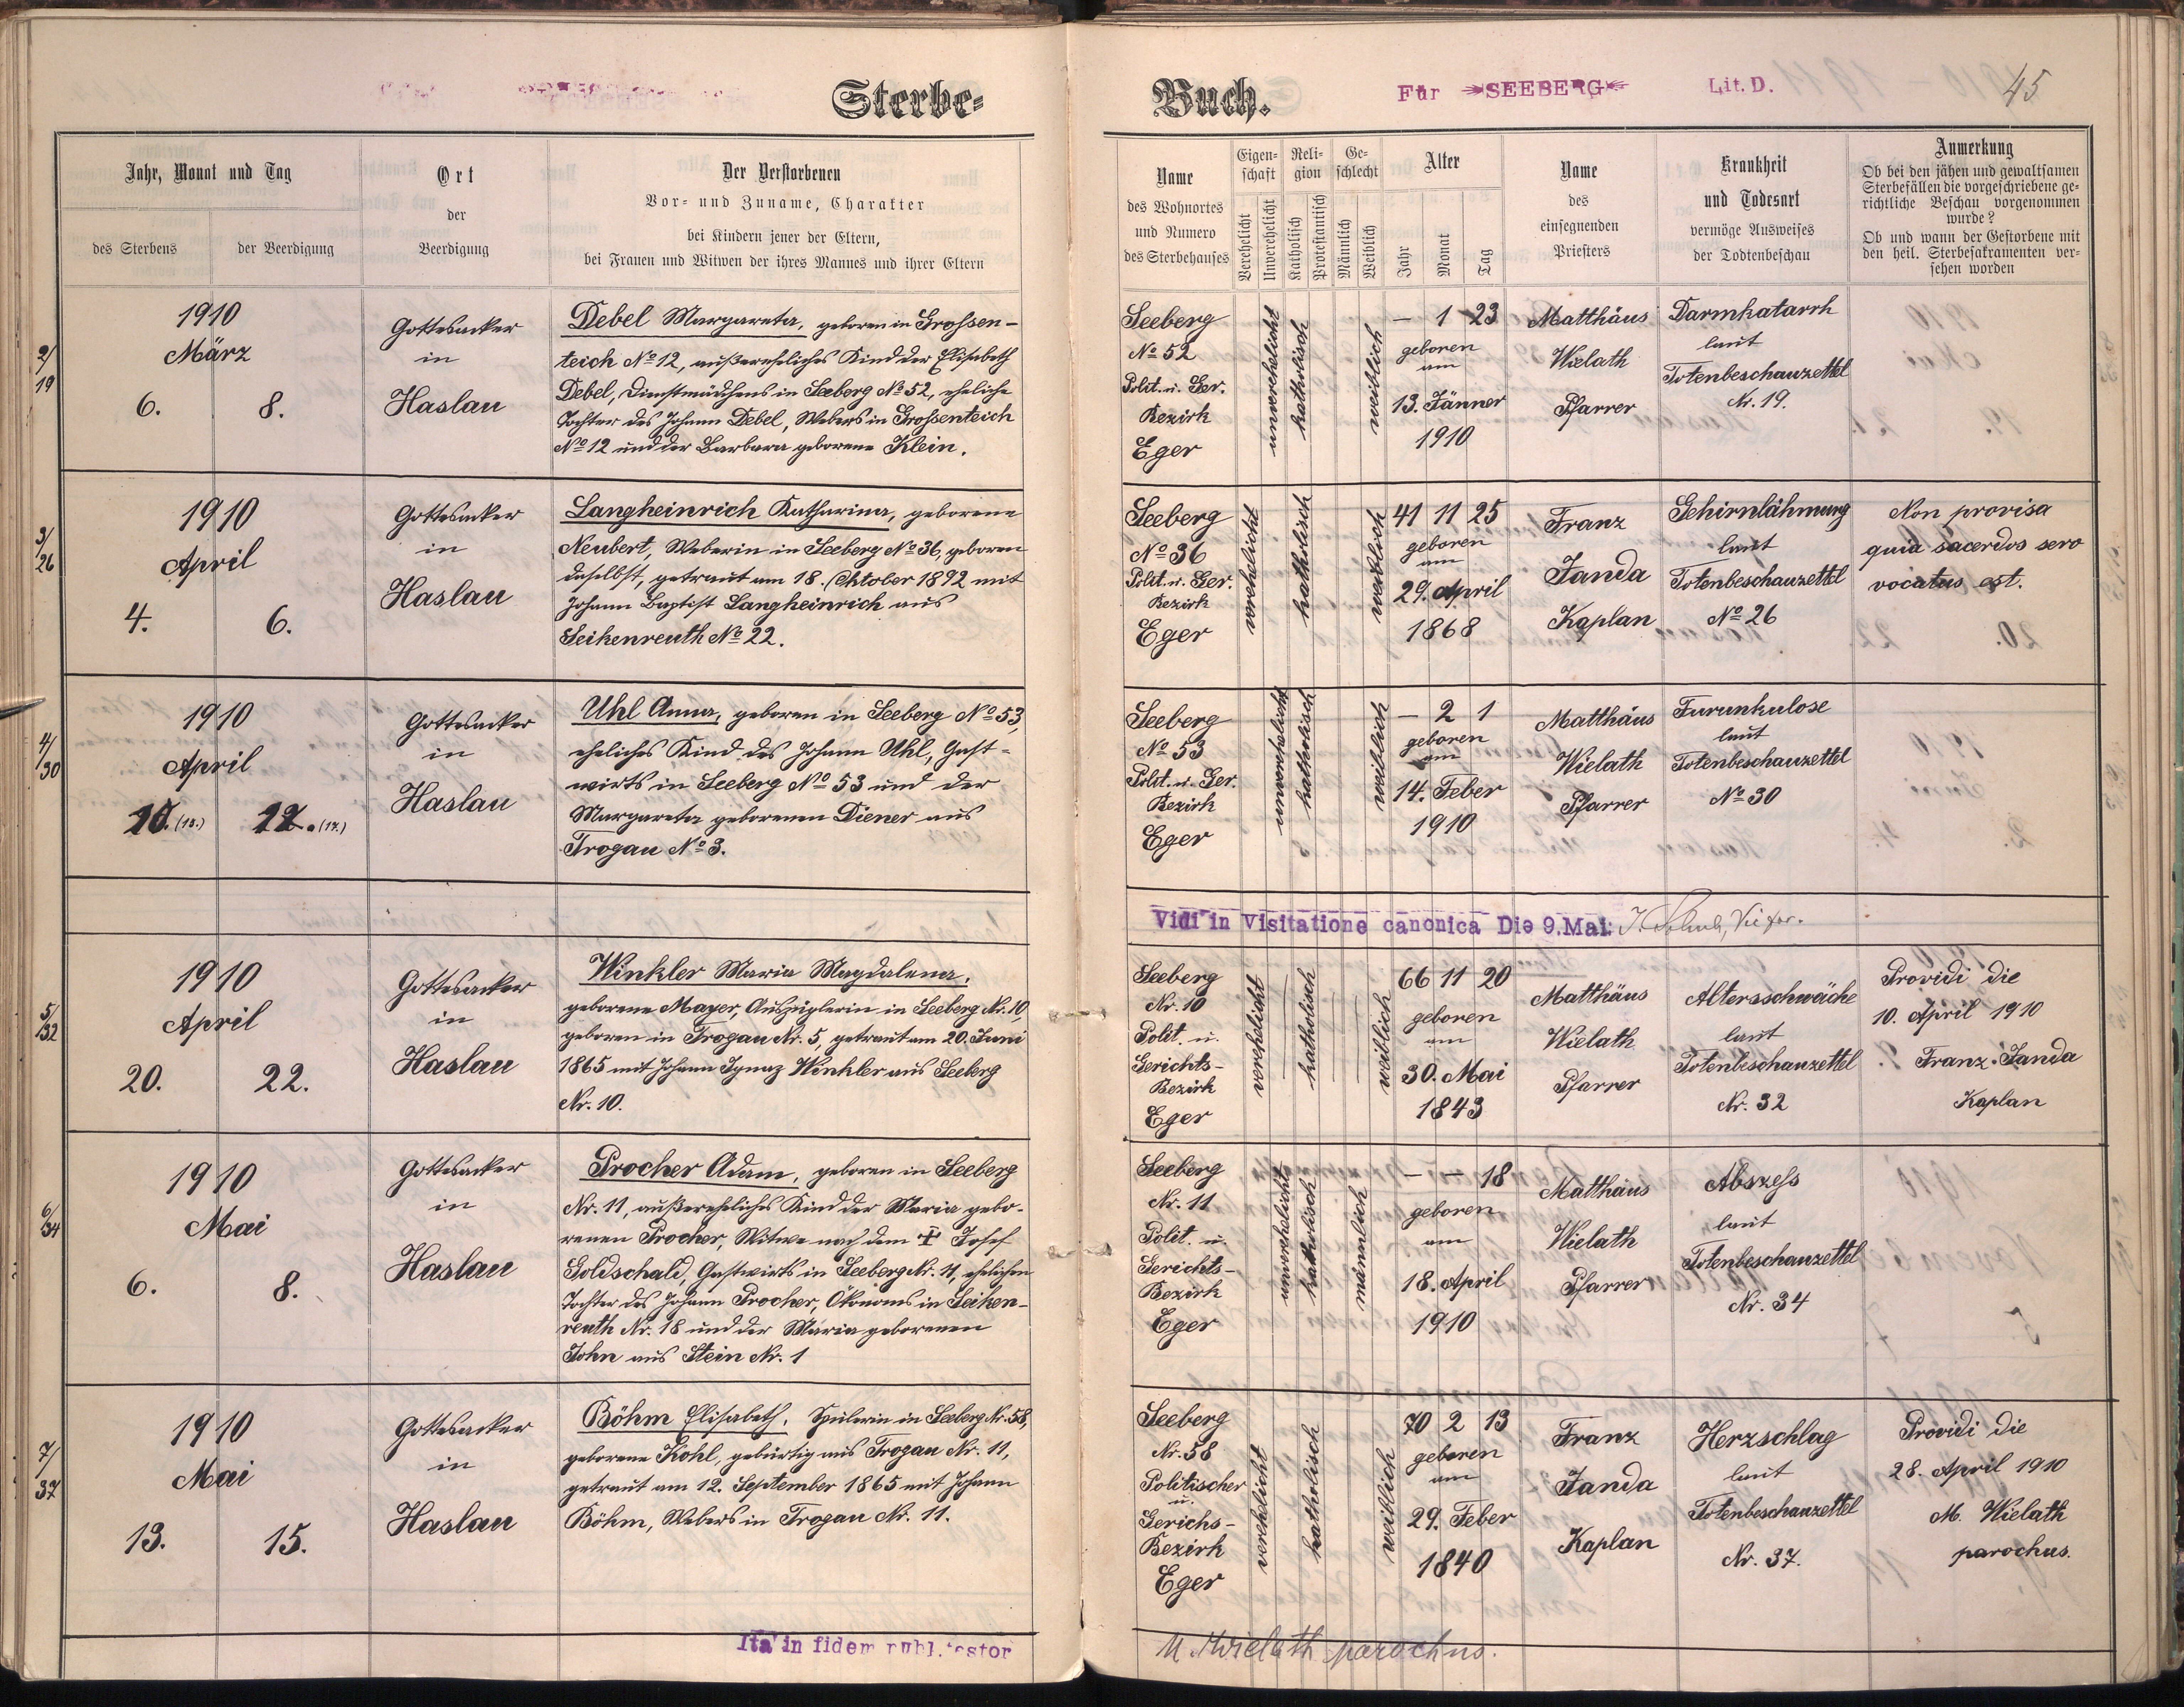 Sterbe-
Jahr, Monat und Tag
des Sterbens
der Beerdigung
Ort
der
Beerdigung
Der Verstorbenen
Vor- und Zuname, Charakter
bei Kindern jener der Eltern,
bei Frauen und Witwen der ihres Mannes und ihrer Eltern
2/19
1910
März
6. 8.
Gottesacker
in
Haslau
Debel Margareta, geboren in Grossen-
teich No 12, außereheliches Kind der Elisabeth
Debel, Dienstmädchens in Seeberg No 52, eheliche
Tochter des Johann Debel, Webers in Grossenteich
No 12 und der Barbara geborene Klein.
3/26
1910
April
4. 6.
Gottesacker
in
Haslau
Langheinrich Katharina, geborene
Neubert, Weberin in Seeberg No 36, geboren
daselbst, getraut am 18. Oktober 1892 mit
Johann Baptist Langheinrich aus
Seikenreuth No 22.
4/30
1910
April
15. (15.) 17. (17.)
Gottesacker
in
Haslau
Uhl Anna, geboren in Seeberg No 53,
eheliches Kind des Johann Uhl, Gast-
wirts in Seeberg No 53 und der
Margareta geborenen Diener aus
Trogau No 3.
5/32
1910
April
20. 22.
Gottesacker
in
Haslau
Winkler Maria Magdalena,
geborene Mayer, Auszüglerin in Seeberg Nr. 10,
geboren in Trogau Nr. 5, getraut am 20. Juni
1865 mit Johann Ignaz Winkler aus Seeberg
Nr. 10.
6/34
1910
Mai
6. 8.
Gottesacker
in
Haslau
Procher Adam, geboren in Seeberg
Nr. 11, außereheliches Kind der Maria gebo-
renen Procher, Witwe nach dem † Josef
Goldschald, Gastwirts in Seeberg Nr. 11, ehelichen
Tochter des Johann Procher, Ökonoms in Seiken-
reuth Nr. 18 und der Maria geborenen
John aus Stein Nr. 1
7/37
1910
Mai
13. 15.
Gottesacker
in
Haslau
Böhm Elisabeth, Spulerin in Seeberg Nr. 58,
geborene Kohl, gebürtig aus Trogau Nr. 11,
getraut am 12. September 1865 mit Johann
Böhm, Webers in Trogau Nr. 11.
Ita in fidem publ. testor
Buch.
Für SEEBERG
Lit. D.
45
Name
des Wohnortes
und Numero
des Sterbehauses
Eigen-
schaft
Verehelicht
Unverehelicht
Reli-
gion
Katholisch
Protestantisch
Ge-
schlecht
Männlich
Weiblich
Alter
Jahr
Monat
Tag
Name
des
einsegnenden
Priesters
Krankheit
und Todesart
vermöge Ausweises
der Todtenbeschau
Anmerkung
Ob bei den jähen und gewaltsamen
Sterbefällen die vorgeschriebene ge-
richtliche Beschau vorgenommen
wurde?
Ob und wann der Gestorbene mit
den heil. Sterbesakramenten ver-
sehen worden
Seeberg
No 52
Polit. u. Ger.
Bezirk
Eger
unverehelicht
katholisch
weiblich
— 1 23
geboren
am
13. Jänner
1910
Matthäus
Wielath
Pfarrer
Darmkatarrh
laut
Totenbeschauzettel
Nr. 19.
Seeberg
No 36
Polit. u. Ger.
Bezirk
Eger
verehelicht
katholisch
weiblich
41 11 25
geboren
am
29. April
1868
Franz
Janda
Kaplan
Gehirnlähmung
laut
Totenbeschauzettel
No 26
Non provisa
quia sacerdos sero
vocatus est.
Seeberg
No 53
Polit. u. Ger.
Bezirk
Eger
unverehelicht
katholisch
weiblich
— 2 1
geboren
am
14. Feber
1910
Matthäus
Wielath
Pfarrer
Furunkulose
laut
Totenbeschauzettel
No 30
Vidi in Visitatione canonica Die 9. Mai:
Seeberg
Nr. 10
Polit. u.
Gerichts-
Bezirk
Eger
verehelicht
katholisch
weiblich
66 11 20
geboren
am
30. Mai
1843
Matthäus
Wielath
Pfarrer
Altersschwäche
laut
Totenbeschauzettel
Nr. 32
Providi die
10. April 1910
Franz Janda
Kaplan
Seeberg
Nr. 11
Polit. u.
Gerichts-
Bezirk
Eger
unverehelicht
katholisch
männlich
— — 18
geboren
am
18. April
1910
Matthäus
Wielath
Pfarrer
Abszess
laut
Totenbeschauzettel
Nr. 34
Seeberg
Nr. 58
Politischer
u.
Gerichs-
Bezirk
Eger
verehelicht
katholisch
weiblich
70 2 13
geboren
am
29. Feber
1840
Franz
Janda
Kaplan
Herzschlag
laut
Totenbeschauzettel
Nr. 37.
Providi die
28. April 1910
M. Wielath
parochus.
M. Wielath parochus.